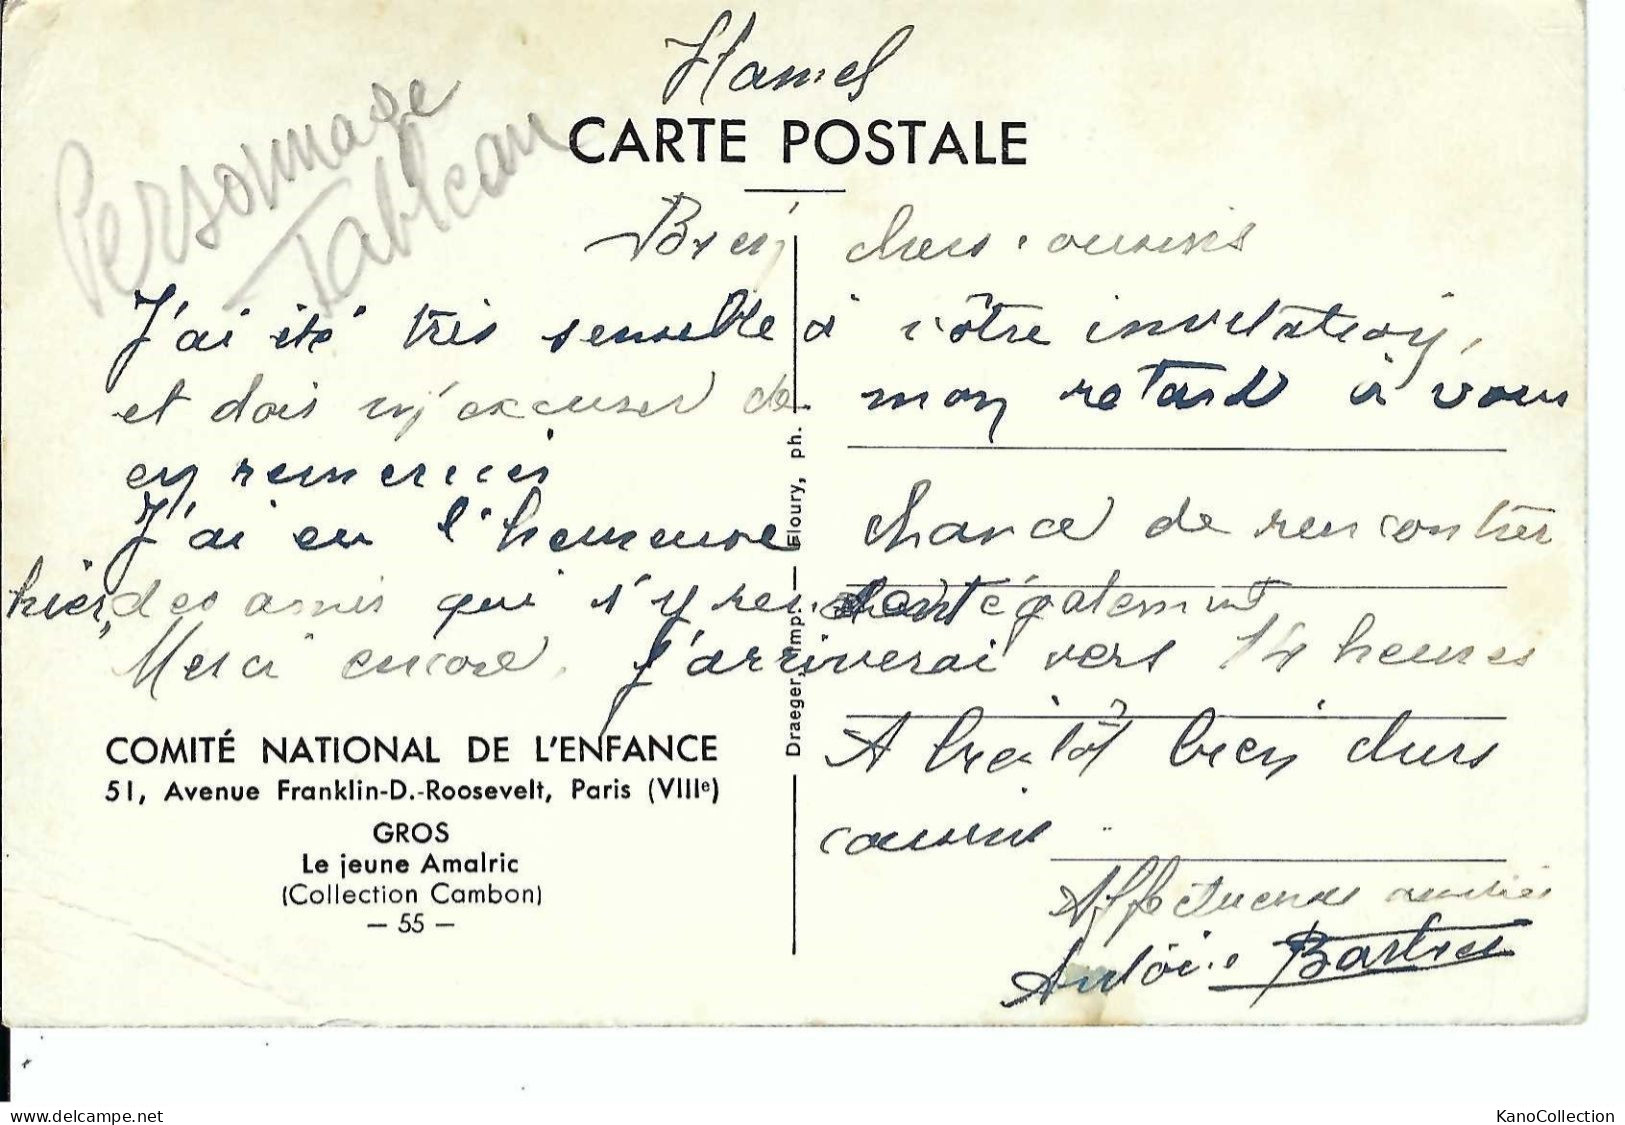 CARTE POSTALE
Personnage
Tableau
Bien chers cousins
J'ai été très sensible à vôtre invitation,
et dois m'excuser de mon retard à vous
en remercier
J'ai eu l'heureuse chance de rencontrer
hier, des amis qui s'y rendent également
Merci encore. J'arriverai vers 14 heures
A bientôt bien chers
cousins.
Affectueuses amitiés
Antoine
COMITÉ NATIONAL DE L'ENFANCE
51, Avenue Franklin-D.-Roosevelt, Paris (VIIIe)
GROS
Le jeune Amalric
(Collection Cambon)
— 55 —
Draeger, imp. — Floury, ph.
www.delcampe.net
KanoCollection